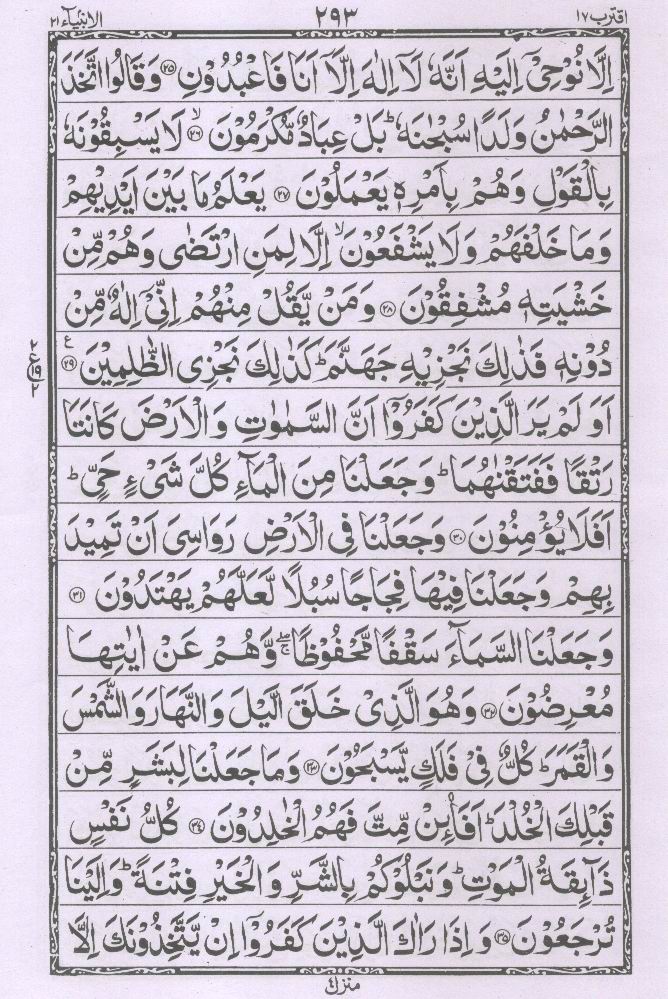 اقترب ١٧ ٢٩٣ الانبياء ٢١
اِلَّا نُوْحِىْٓ اِلَيْهِ اَنَّهٗ لَاۤ اِلٰهَ اِلَّاۤ اَنَا فَاعْبُدُوْنِ ۝٢٥ وَقَالُوا اتَّخَذَ
الرَّحْمٰنُ وَلَدًا سُبْحٰنَهٗ ؕ بَلْ عِبَادٌ مُّكْرَمُوْنَ ۝٢٦ ۙ لَا يَسْبِقُوْنَهٗ
بِالْقَوْلِ وَهُمْ بِاَمْرِهٖ يَعْمَلُوْنَ ۝٢٧ يَعْلَمُ مَا بَيْنَ اَيْدِيْهِمْ
وَمَا خَلْفَهُمْ وَلَا يَشْفَعُوْنَ ۙ اِلَّا لِمَنِ ارْتَضٰى وَهُمْ مِّنْ
خَشْيَتِهٖ مُشْفِقُوْنَ ۝٢٨ وَمَنْ يَّقُلْ مِنْهُمْ اِنِّىْٓ اِلٰهٌ مِّنْ
دُوْنِهٖ فَذٰلِكَ نَجْزِيْهِ جَهَنَّمَ ؕ كَذٰلِكَ نَجْزِى الظّٰلِمِيْنَ ۝٢٩ ع
٢ ع ١٩ ٢
اَوَلَمْ يَرَ الَّذِيْنَ كَفَرُوْۤا اَنَّ السَّمٰوٰتِ وَالْاَرْضَ كَانَتَا
رَتْقًا فَفَتَقْنٰهُمَا ؕ وَجَعَلْنَا مِنَ الْمَآءِ كُلَّ شَىْءٍ حَىٍّ ؕ
اَفَلَا يُؤْمِنُوْنَ ۝٣٠ وَجَعَلْنَا فِى الْاَرْضِ رَوَاسِىَ اَنْ تَمِيْدَ
بِهِمْ وَجَعَلْنَا فِيْهَا فِجَاجًا سُبُلًا لَّعَلَّهُمْ يَهْتَدُوْنَ ۝٣١
وَجَعَلْنَا السَّمَآءَ سَقْفًا مَّحْفُوْظًا ۖۚ وَّهُمْ عَنْ اٰيٰتِهَا
مُعْرِضُوْنَ ۝٣٢ وَهُوَ الَّذِىْ خَلَقَ الَّيْلَ وَالنَّهَارَ وَالشَّمْسَ
وَالْقَمَرَ ؕ كُلٌّ فِىْ فَلَكٍ يَّسْبَحُوْنَ ۝٣٣ وَمَا جَعَلْنَا لِبَشَرٍ مِّنْ
قَبْلِكَ الْخُلْدَ ؕ اَفَا۟ئِنْ مِّتَّ فَهُمُ الْخٰلِدُوْنَ ۝٣٤ كُلُّ نَفْسٍ
ذَآئِقَةُ الْمَوْتِ ؕ وَنَبْلُوْكُمْ بِالشَّرِّ وَالْخَيْرِ فِتْنَةً ؕ وَاِلَيْنَا
تُرْجَعُوْنَ ۝٣٥ وَاِذَا رَاٰكَ الَّذِيْنَ كَفَرُوْۤا اِنْ يَّتَّخِذُوْنَكَ اِلَّا
منزل ٤